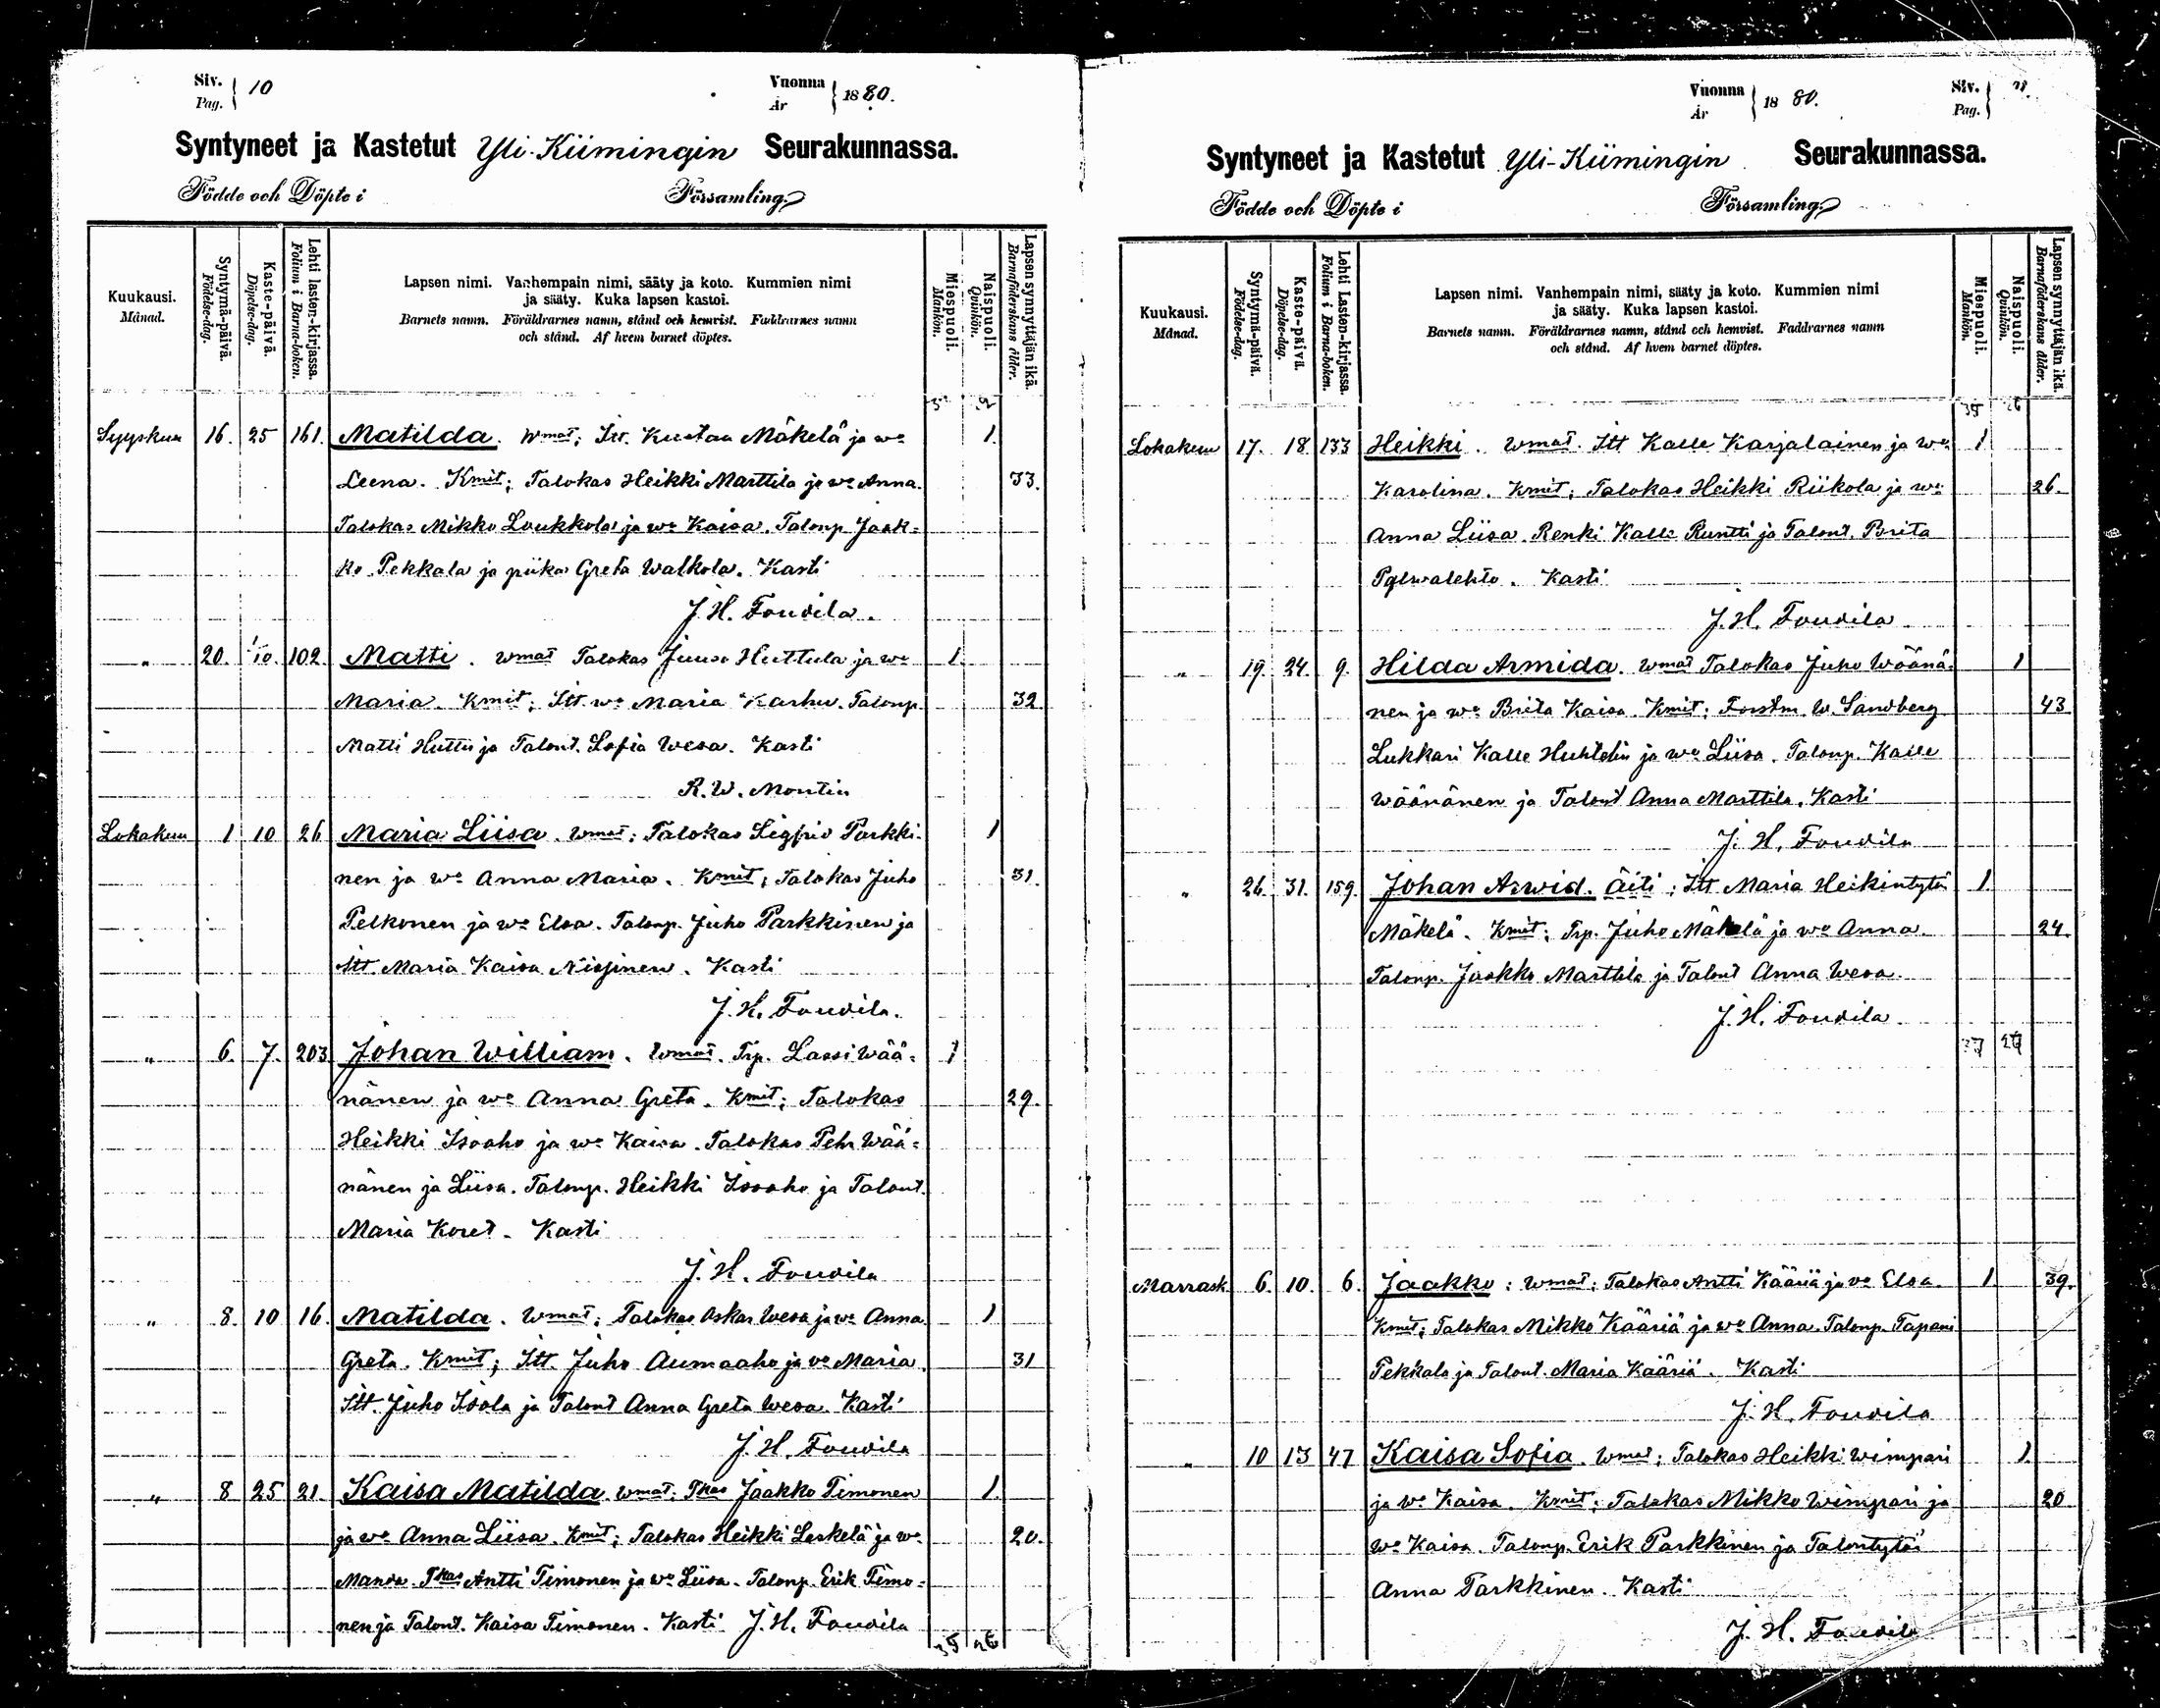 Siv. Pag. 10
Vuonna År 1880.
Syntyneet ja Kastetut Yli-Kiimingin Seurakunnassa.
Födde och Döpte i Församling.
Kuukausi. Månad.
Syntymä-päivä. Födelse-dag.
Kaste-päivä. Döpelse-dag.
Lehti lasten-kirjassa. Folium i Barna-boken.
Lapsen nimi. Vanhempain nimi, sääty ja koto. Kummien nimi
ja sääty. Kuka lapsen kastoi.
Barnets namn. Föräldrarnes namn, stånd och hemvist. Faddrarnes namn
och stånd. Af hvem barnet döptes.
Miespuoli. Mankön.
Naispuoli. Qvinkön.
Lapsen synnyttäjän ikä. Barnaföderskans ålder.
Syyskuu 16. 25 161. Matilda. Wmat; Itt. Kustaa Mäkelä ja wo 1.
Leena. Kmit; Talokas Heikki Marttila ja wo Anna. 33.
Talokas Mikko Loukkola ja wo Kaisa. Talonp. Jaak=
ko Pekkala ja piika Greta Walkola. Kasti
J. H. Foudila.
" 20. 1/10. 102 Matti. Wmat Talokas Juuso Huttula ja wo 1.
Maria. Kmit; Itt. wo Maria Karhu. Talonp. 32
Matti Huttu ja Talont. Sofia Wesa. Kasti
R. W. Montin
Lokakuu 1 10 26 Maria Liisa. Wmat; Talokas Sigfrid Parkki- 1
nen ja wo Anna Maria. Kmit; Talokas Juho 31.
Pelkonen ja wo Elsa. Talonp. Juho Parkkinen ja
Itt. Maria Kaisa Nissinen. Kasti
J. H. Foudila.
" 6. 7. 203 Johan William. Wmat. Trp. Lassi Wää= 1
nänen ja wo Anna Greta. Kmit; Talokas 29.
Heikki Isoaho ja wo Kaisa. Talokas Pehr Wää=
nänen ja Liisa. Talonp. Heikki Isoaho ja Talont.
Maria Koret. Kasti
J. H. Foudila
" 8. 10 16. Matilda. Wmat; Talokas Oskar Wesa ja wo Anna 1
Greta. Kmit; Itt. Juho Aumaaho ja wo Maria. 31
Itt. Juho Isola ja Talont Anna Greta Wesa. Kasti
J. H. Foudila
" 8 25 21 Kaisa Matilda. Wmat; Tkas Jaakko Timonen 1.
ja wo Anna Liisa. Kmit; Talokas Heikki Leskelä ja wo 20.
Manda. Tkas Antti Timonen ja wo Liisa. Talonp. Erik Timo=
nen ja Talont. Kaisa Timonen. Kasti J. H. Foudila
35 26
Vuonna År 1880.
Siv. Pag.
Syntyneet ja Kastetut Yli-Kiimingin Seurakunnassa.
Födde och Döpte i Församling.
Kuukausi. Månad.
Syntymä-päivä. Födelse-dag.
Kaste-päivä. Döpelse-dag.
Lehti Lasten-kirjassa. Folium i Barna-boken.
Lapsen nimi. Vanhempain nimi, sääty ja koto. Kummien nimi
ja sääty. Kuka lapsen kastoi.
Barnets namn. Föräldrarnes namn, stånd och hemvist. Faddrarnes namn
och stånd. Af hvem barnet döptes.
Miespuoli. Mankön.
Naispuoli. Qvinkön.
Lapsen synnyttäjän ikä. Barnaföderskans ålder.
35 26
Lokakuu 17. 18 133 Heikki. Wmat. Itt Kalle Karjalainen ja wo 1
Karolina. Kmit; Talokas Heikki Riikola ja wo 26.
Anna Liisa. Renki Kalle Runtti ja Talont. Brita
Pylwalehto. Kasti
J. H. Foudila
" 19. 24. 9. Hilda Armida. Wmat Talokas Juho Wäänä- 1
nen ja wo Brita Kaisa. Kmit; Forstm. W. Sandberg 43
Lukkari Kalle Huhtelin ja wo Liisa. Talonp. Kalle
Wäänänen ja Talont Anna Marttila. Kasti
J. H. Foudila
" 26. 31. 159. Johan Arwid. Äiti; Itt. Maria Heikintytär 1.
Mäkelä. Kmit; Trp. Juho Mäkelä ja wo Anna. 24.
Talonp. Jaakko Marttila ja Talont Anna Wesa.
J. H. Foudila.
37 27
Marrask. 6. 10. 6. Jaakko; Wmat; Talokas Antti Kääriä ja wo Elsa. 1 39.
Kmit; Talokas Mikko Kääriä ja wo Anna. Talonp. Tapani
Pekkala ja Talont. Maria Kääriä. Kasti
J. H. Foudila
" 10 13 47 Kaisa Sofia. Wmat; Talokas Heikki Wimpari 1.
ja wo Kaisa. Kmit; Talokas Mikko Wimpari ja 20
wo Kaisa. Talonp. Erik Parkkinen ja Talontytär
Anna Parkkinen. Kasti
J. H. Foudila